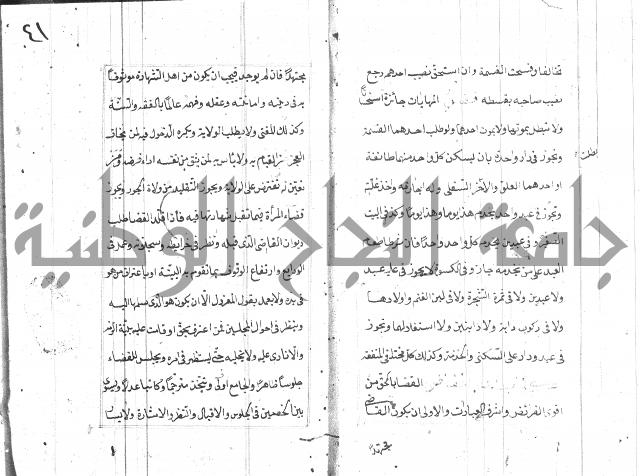 تحالفا وفسخت القسمة وان استحق نصيب احدهم رجع
نصيب صاحبه بقسطه المهايات جائزة استحسانًا
ولا تبطل بموتهما ولا بموت احدهما ولو طلب احدهما القسمة
وتجوز فى دار واحدة بان يسكن كل واحد منهما طائفة
او احدهما العلو والاخر السفلى وله اجارته واخذ غلته
وتجوز فى عبد واحد يخدم هذا يومًا وهذا يومًا وكذا فى البيت
الصغير وفى عبدين يخدم كل واحد واحدًا فان شرطا طعام
العبد على من يخدمه جاز وفى الكسوة لا يجوز فى غلة عبد
ولا عبدين ولا فى ثمرة الشجرة ولا فى لبن الغنم واولادها
ولا فى ركوب دابة ولا دابتين ولا استغلالها وتجوز
فى عبد ودار على السكنى والخدمة وكذلك كل مختلفى المنفعة
القضا بالحق من
اقوى الفرائض واشرف العبادات والاولى ان يكون القاضى
مجتهدًا
٤١
مجتهدًا فان لم يوجد فيجب ان يكون من اهل الشهادة موثوقًا
به فى دينه وامانته وعقله وفهمه عالمًا بالفقه والسنة
وكذلك المفتى ولا يطلب الولاية ويكره الدخول فيه لمن يخاف
العجز عن القيام به ولا بأس به لمن يثق من نفسه اداء فرضه ومن
تعين له تفترض على الولاية ويجوز التقليد من ولاة الجور ويجوز
قضاء المرأة فيما تقبل شهادتها فيه فاذا قلد القضا طلب
ديوان القاضى الذى قبله ونظر فى خرائطه وسجلاته وعمل فى
الودايع وارتفاع الوقوف بما تقوم به البينة او باعتراف من هو
فى يده ولا يعمل بقول المعزول الا ان يكون هو الذى سلمها اليه
وينظر فى احوال المحبوسين فمن اعترف بحق او قامت عليه بينة الزمه
والا نادى عليه ولا يخليه حتى يستظهر فى امره ويجلس للقضاء
جلوسًا ظاهرًا والجامع اولى ويتخذ مترجمًا وكاتبًا عدلًا ويسوى
بين الخصمين فى الجلوس والاقبال والنظر والاشارة ولا يسار
جامعة النجاح الوطنية